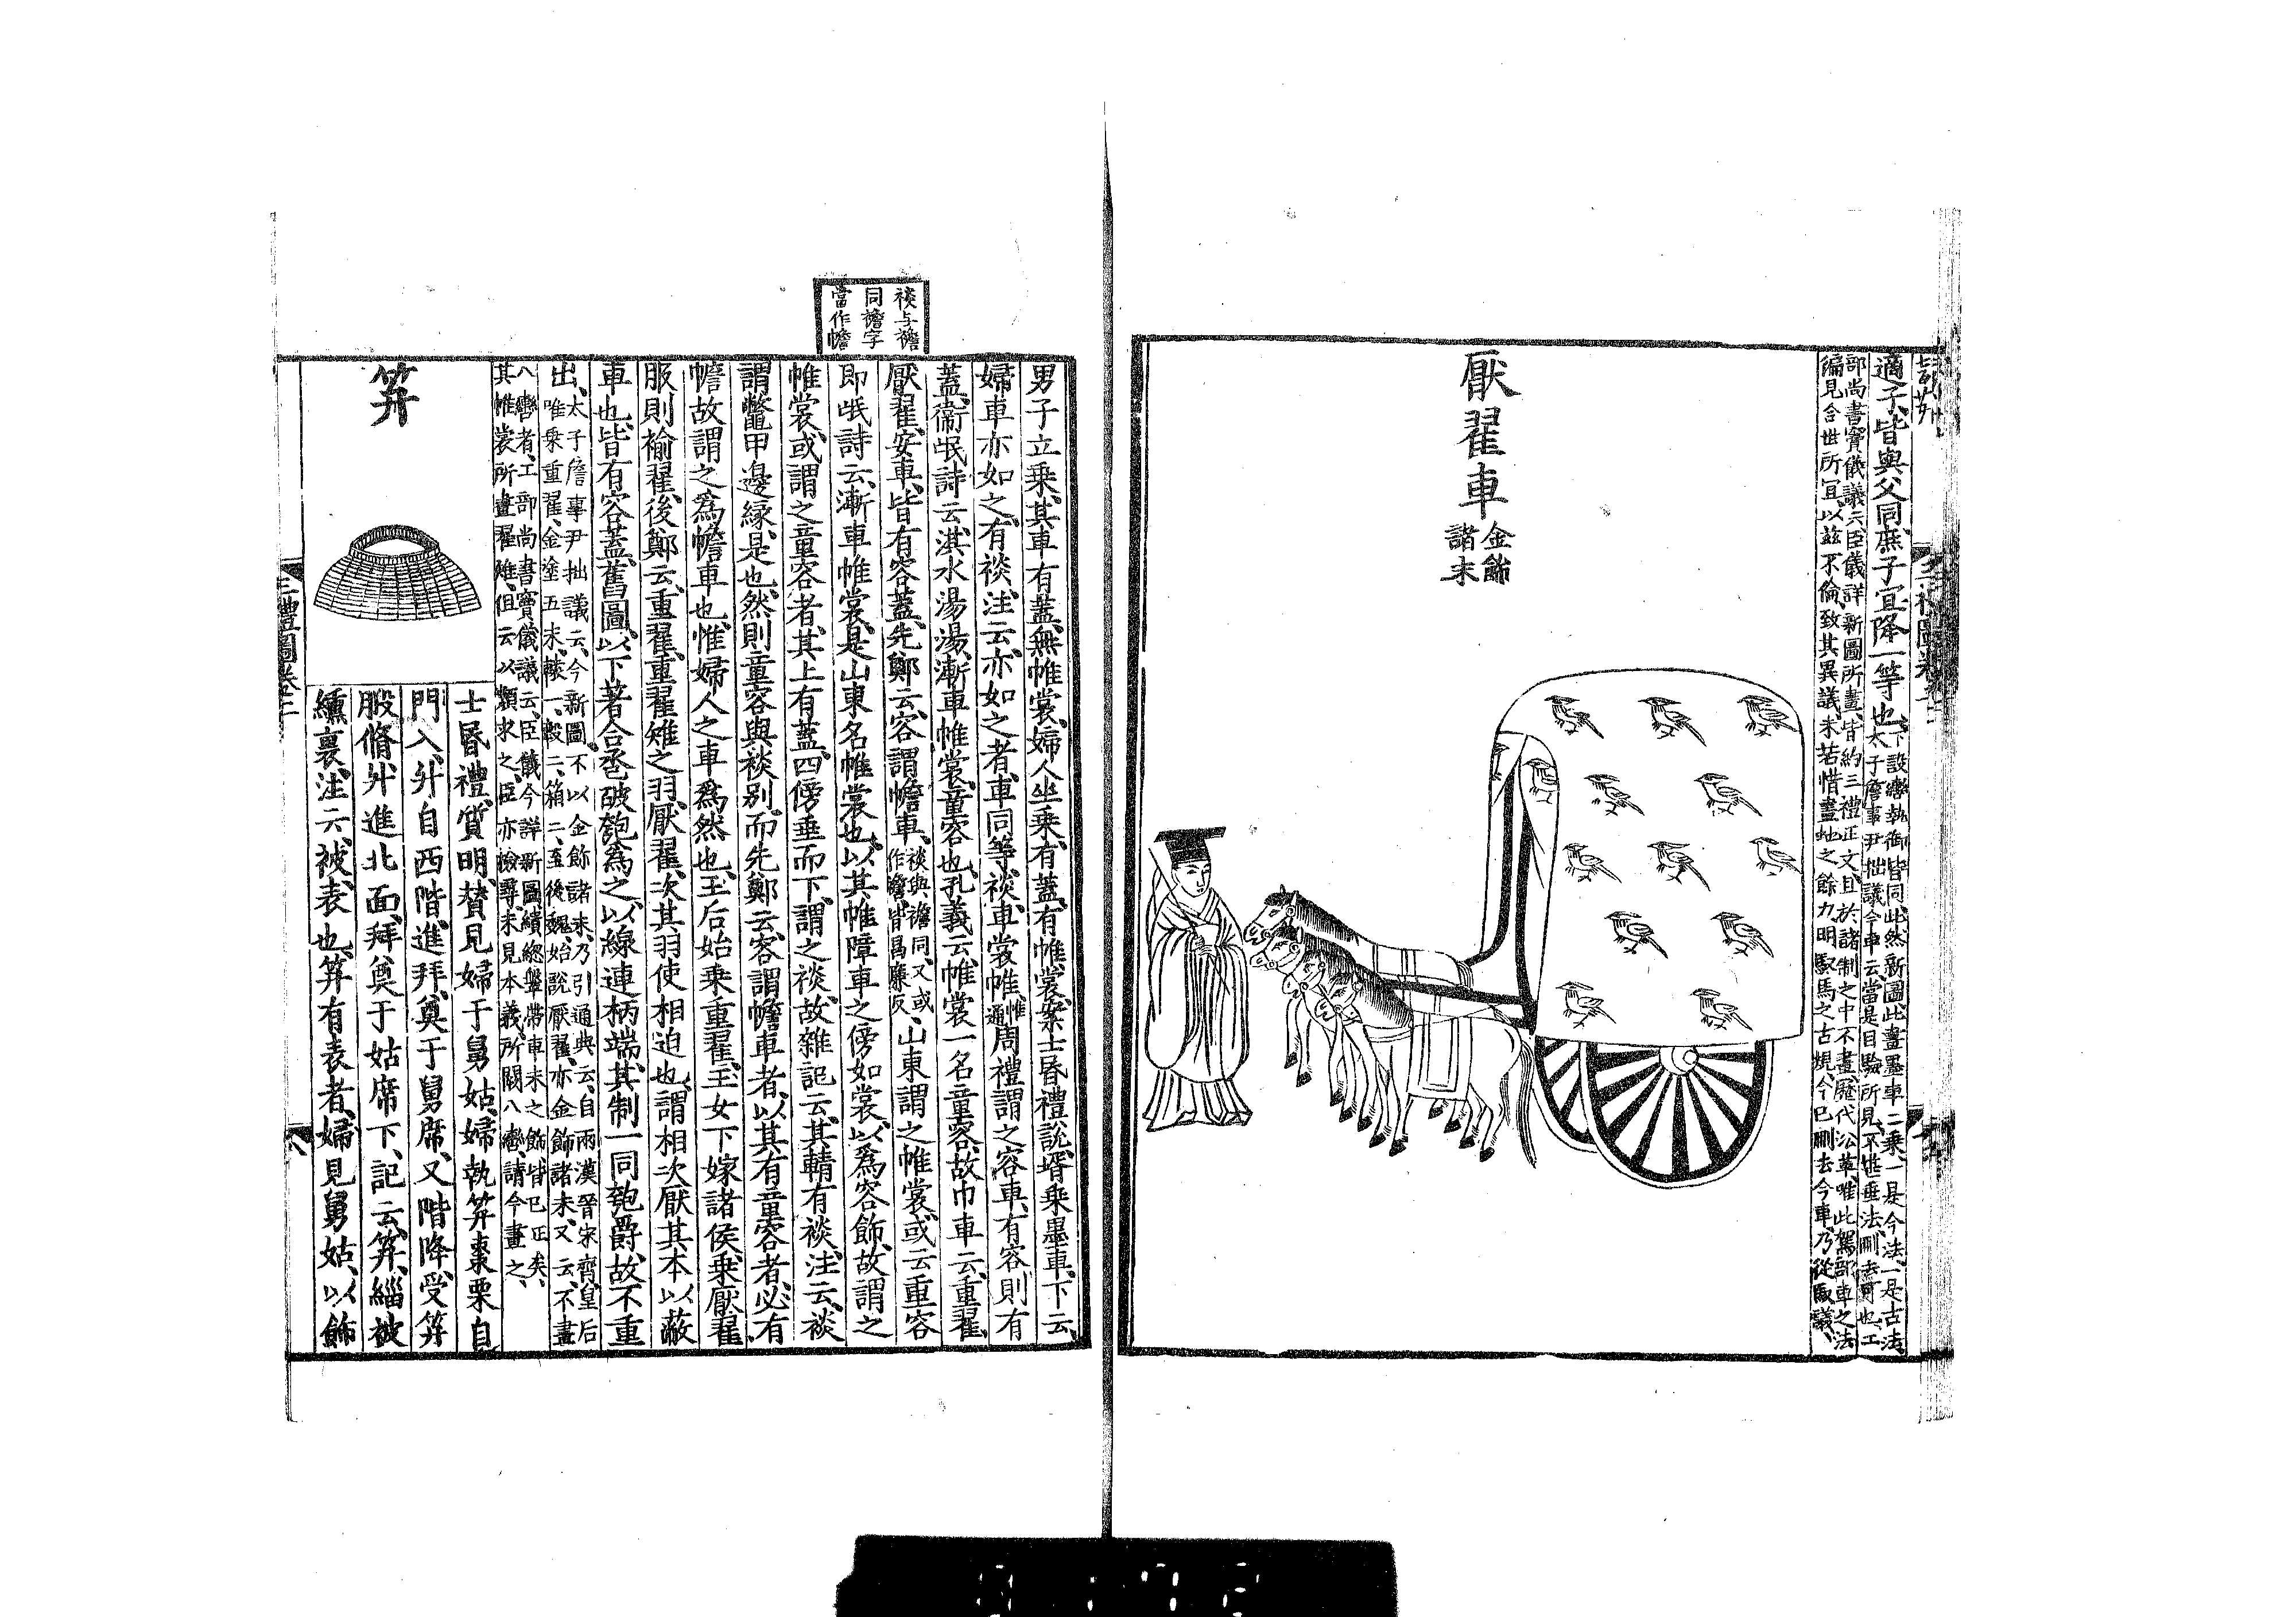 適子皆與父同庶子宜降一等也
下設轡執御皆同此然新圖此畫墨車二乗一是今法一是古法
太子詹事尹拙議今車云當是目驗所見不堪垂法刪去可也工
部尚書竇儀議云臣儀詳新圖所畫皆約三禮正文且於諸制之中不畫歷代沿革唯此駕部車之法
偏見合世所宜以兹不倫致其異議未若惜畫虵之餘力明馭馬之古規今已刪去今車乃從竇議
厭翟車
金飾
諸末
祴与襜
同襜字
當作幨
男子立乗其車有蓋無帷裳婦人坐乗有蓋有帷裳案士昬禮説壻乗墨車下云
婦車亦如之有裧注云亦如之者車同等裧車裳帷周禮謂之容車有容則有
蓋衞氓詩云淇水湯湯漸車帷裳童容也孔義云帷裳一名童容故巾車云重翟
厭翟安車皆有容蓋先鄭云容謂幨車
裧與襜同又或
作幨皆昌廉反
山東謂之帷裳或云重容
即氓詩云漸車帷裳是山東名帷裳也以其帷障車之傍如裳以爲容飾故謂之
帷裳或謂之童容者其上有蓋四傍垂而下謂之裧故雜記云其輤有裧注云裧
謂鼈甲邊縁是也然則童容與裧别而先鄭云容謂幨車者以其有童容者必有
幨故謂之爲幨車也惟婦人之車爲然也王后始乗重翟王女下嫁諸侯乗厭翟
服則褕翟後鄭云重翟重翟雉之羽厭翟次其羽使相迫也謂相次厭其本以蔽
車也皆有容蓋舊圖以下著合巹破匏爲之以線連柄端其制一同匏爵故不重
出
太子詹事尹拙議云今新圖不以金飾諸末乃引通典云自兩漢晉宋齊皇后
唯乗重翟金塗五末轅一轂二箱二至後魏始説厭翟亦金飾諸末又云不畫
八轡者工部尚書竇儀議云臣儀今詳新圖續總鞶帶車末之飾皆已正矣
其帷裳所畫翟雉但云以類求之臣亦檢尋未見本義所闕八轡請今畫之
笲
士昬禮質明賛見婦于舅姑婦執笲棗栗自
門入升自西階進拜奠于舅席又階降受笲
腶脩升進北面拜奠于姑席下記云笲緇被
纁裏注云被表也笲有表者婦見舅姑以飾
三禮圖卷第二